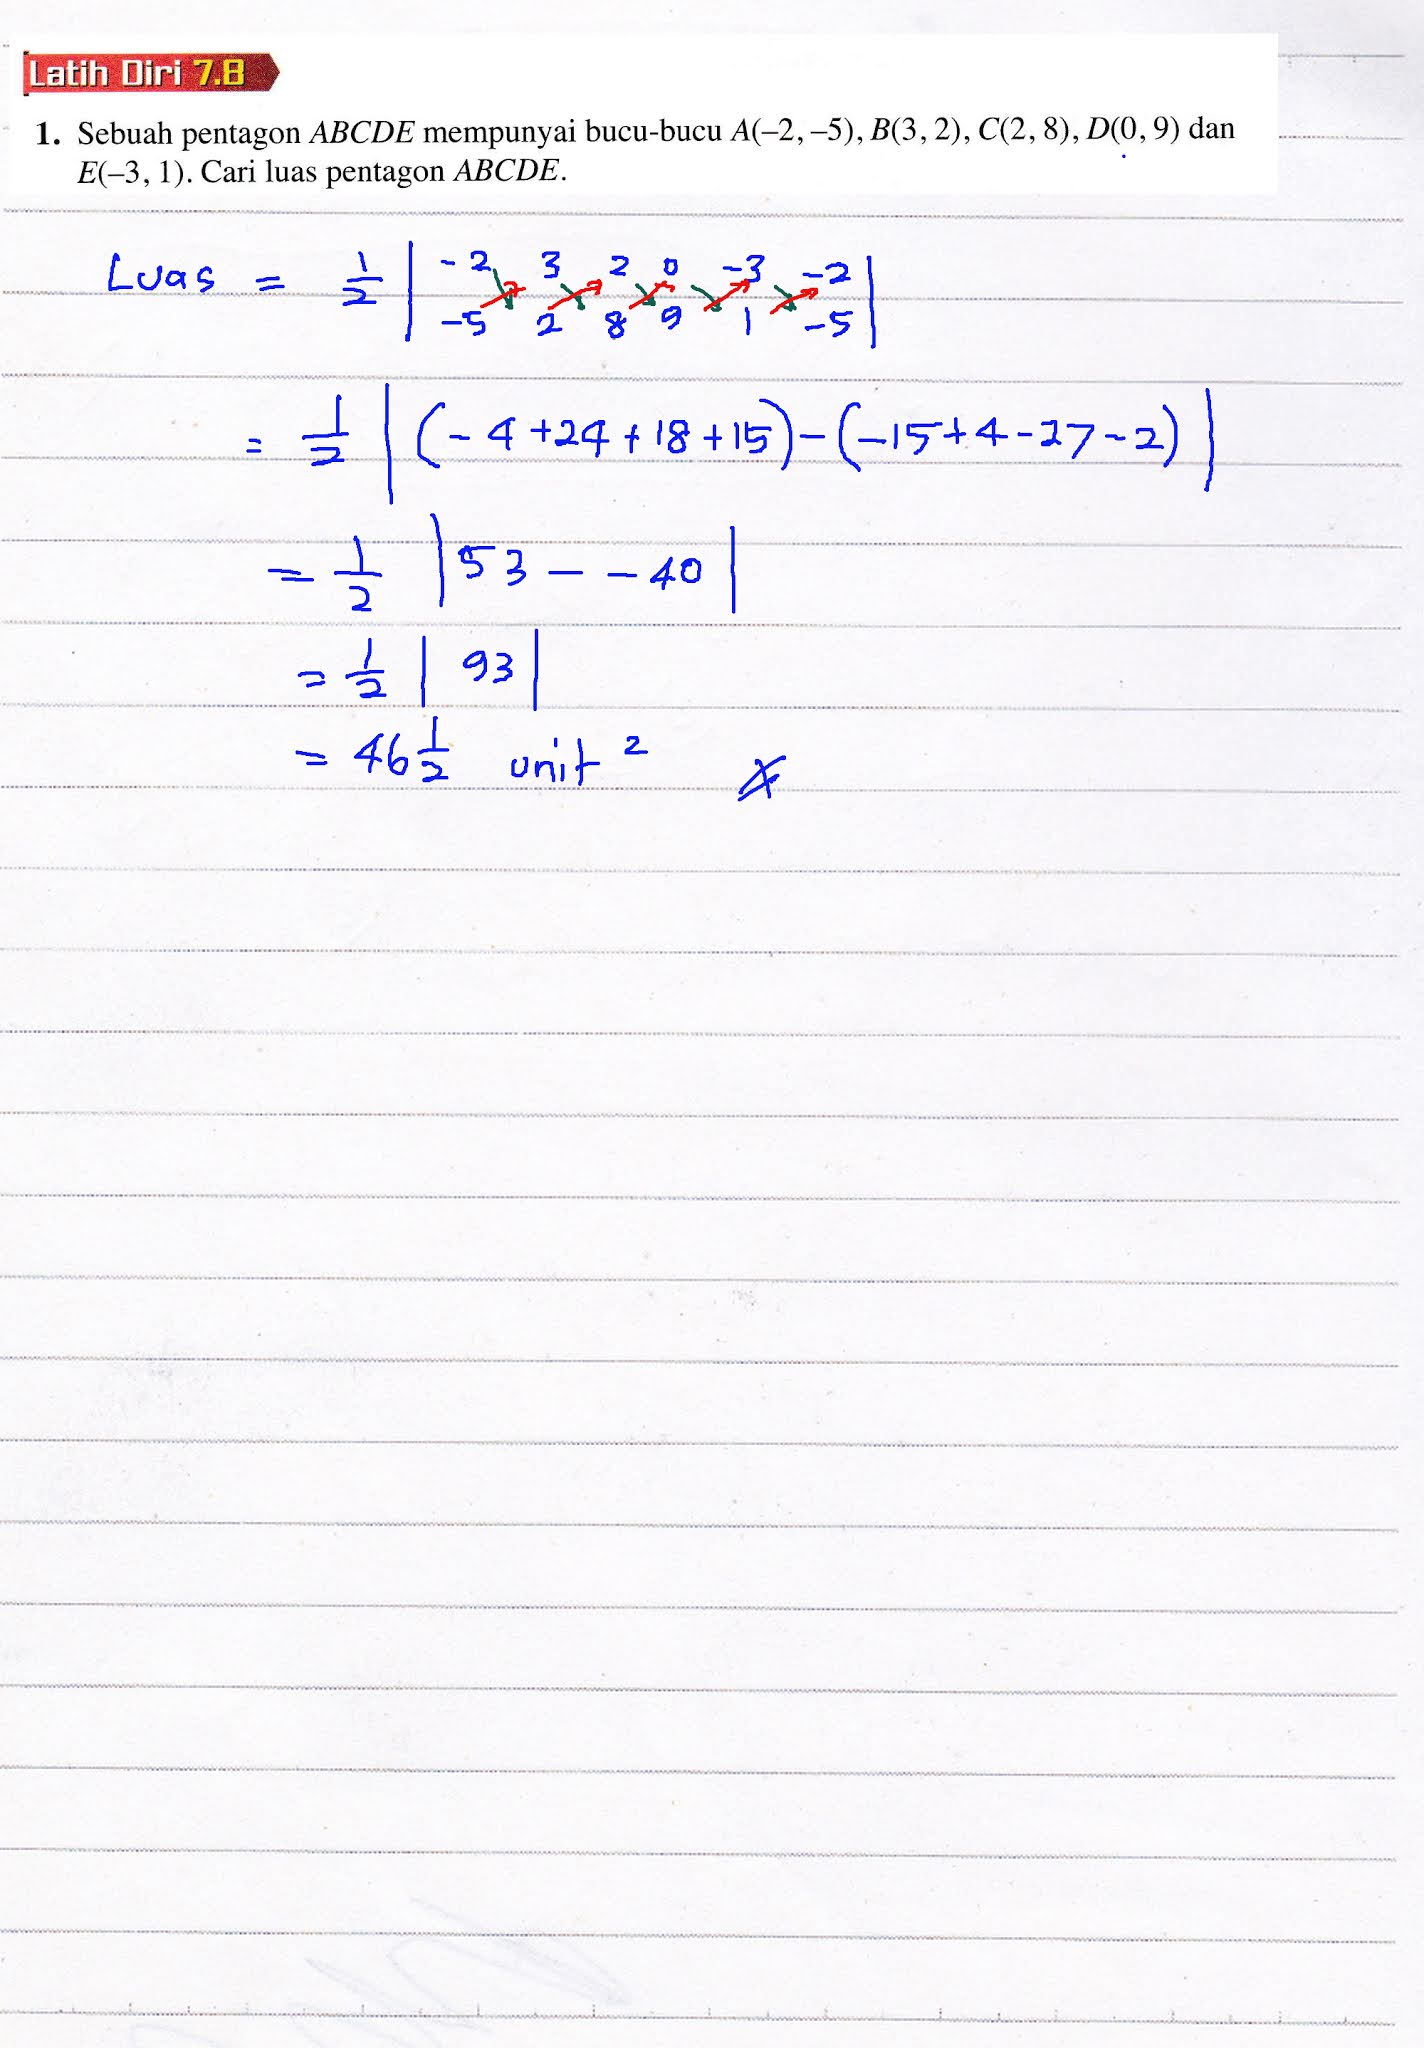 Latih Diri 7.8
1. Sebuah pentagon ABCDE mempunyai bucu-bucu A(–2, –5), B(3, 2), C(2, 8), D(0, 9) dan
E(–3, 1). Cari luas pentagon ABCDE.
Luas = 1/2 | -2 3 2 0 -3 -2 |
-5 2 8 9 1 -5
= 1/2 | (-4+24+18+15)-(-15+4-27-2) |
= 1/2 | 53 - -40 |
= 1/2 | 93 |
= 46 1/2 unit ²